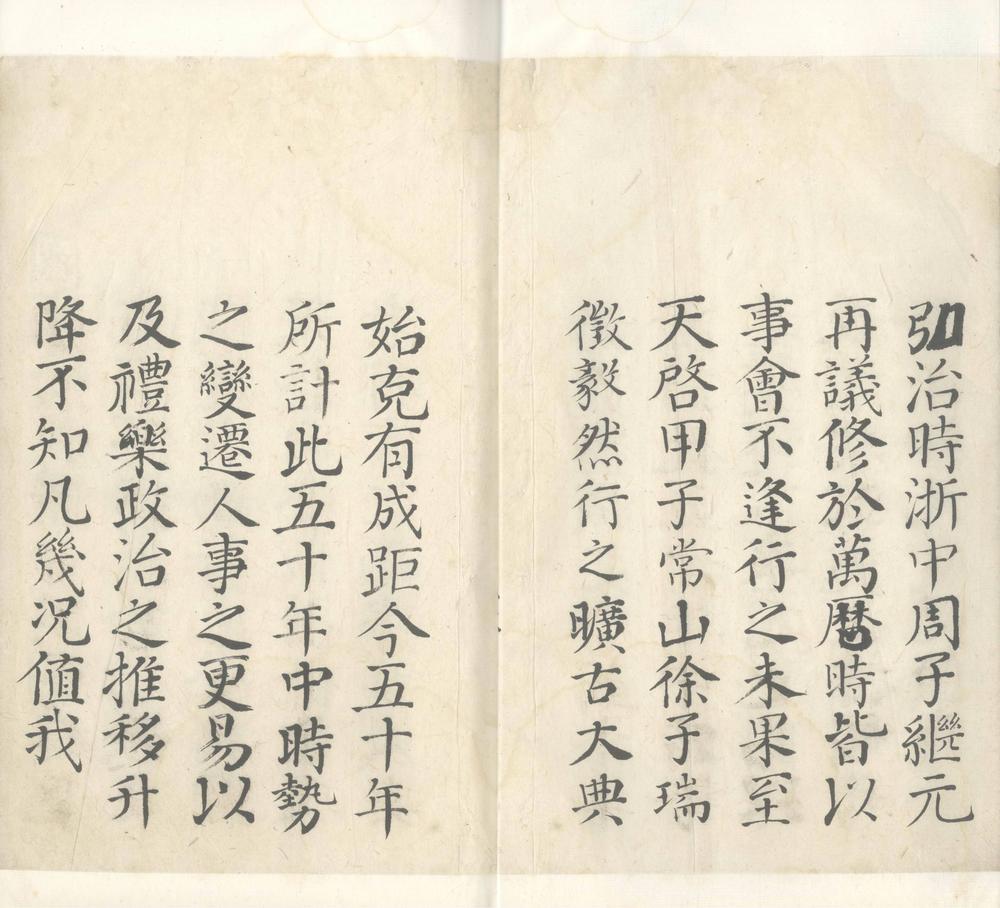 弘治時浙中周子繼元
再議修於萬曆時皆以
事會不逢行之未果至
天啓甲子常山徐子瑞
徵毅然行之曠古大典
始克有成距今五十年
所計此五十年中時勢
之變遷人事之更易以
及禮樂政治之推移升
降不知凡幾况值我